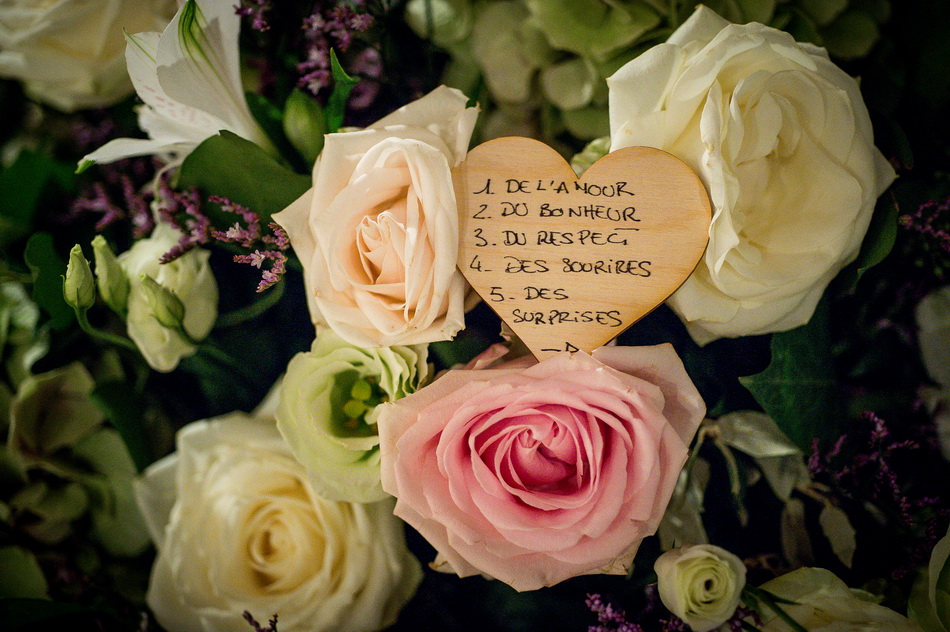 1. DE L'AMOUR
2. DU BONHEUR
3. DU RESPECT
4- DES SOURIRES
5. DES
SURPRISES